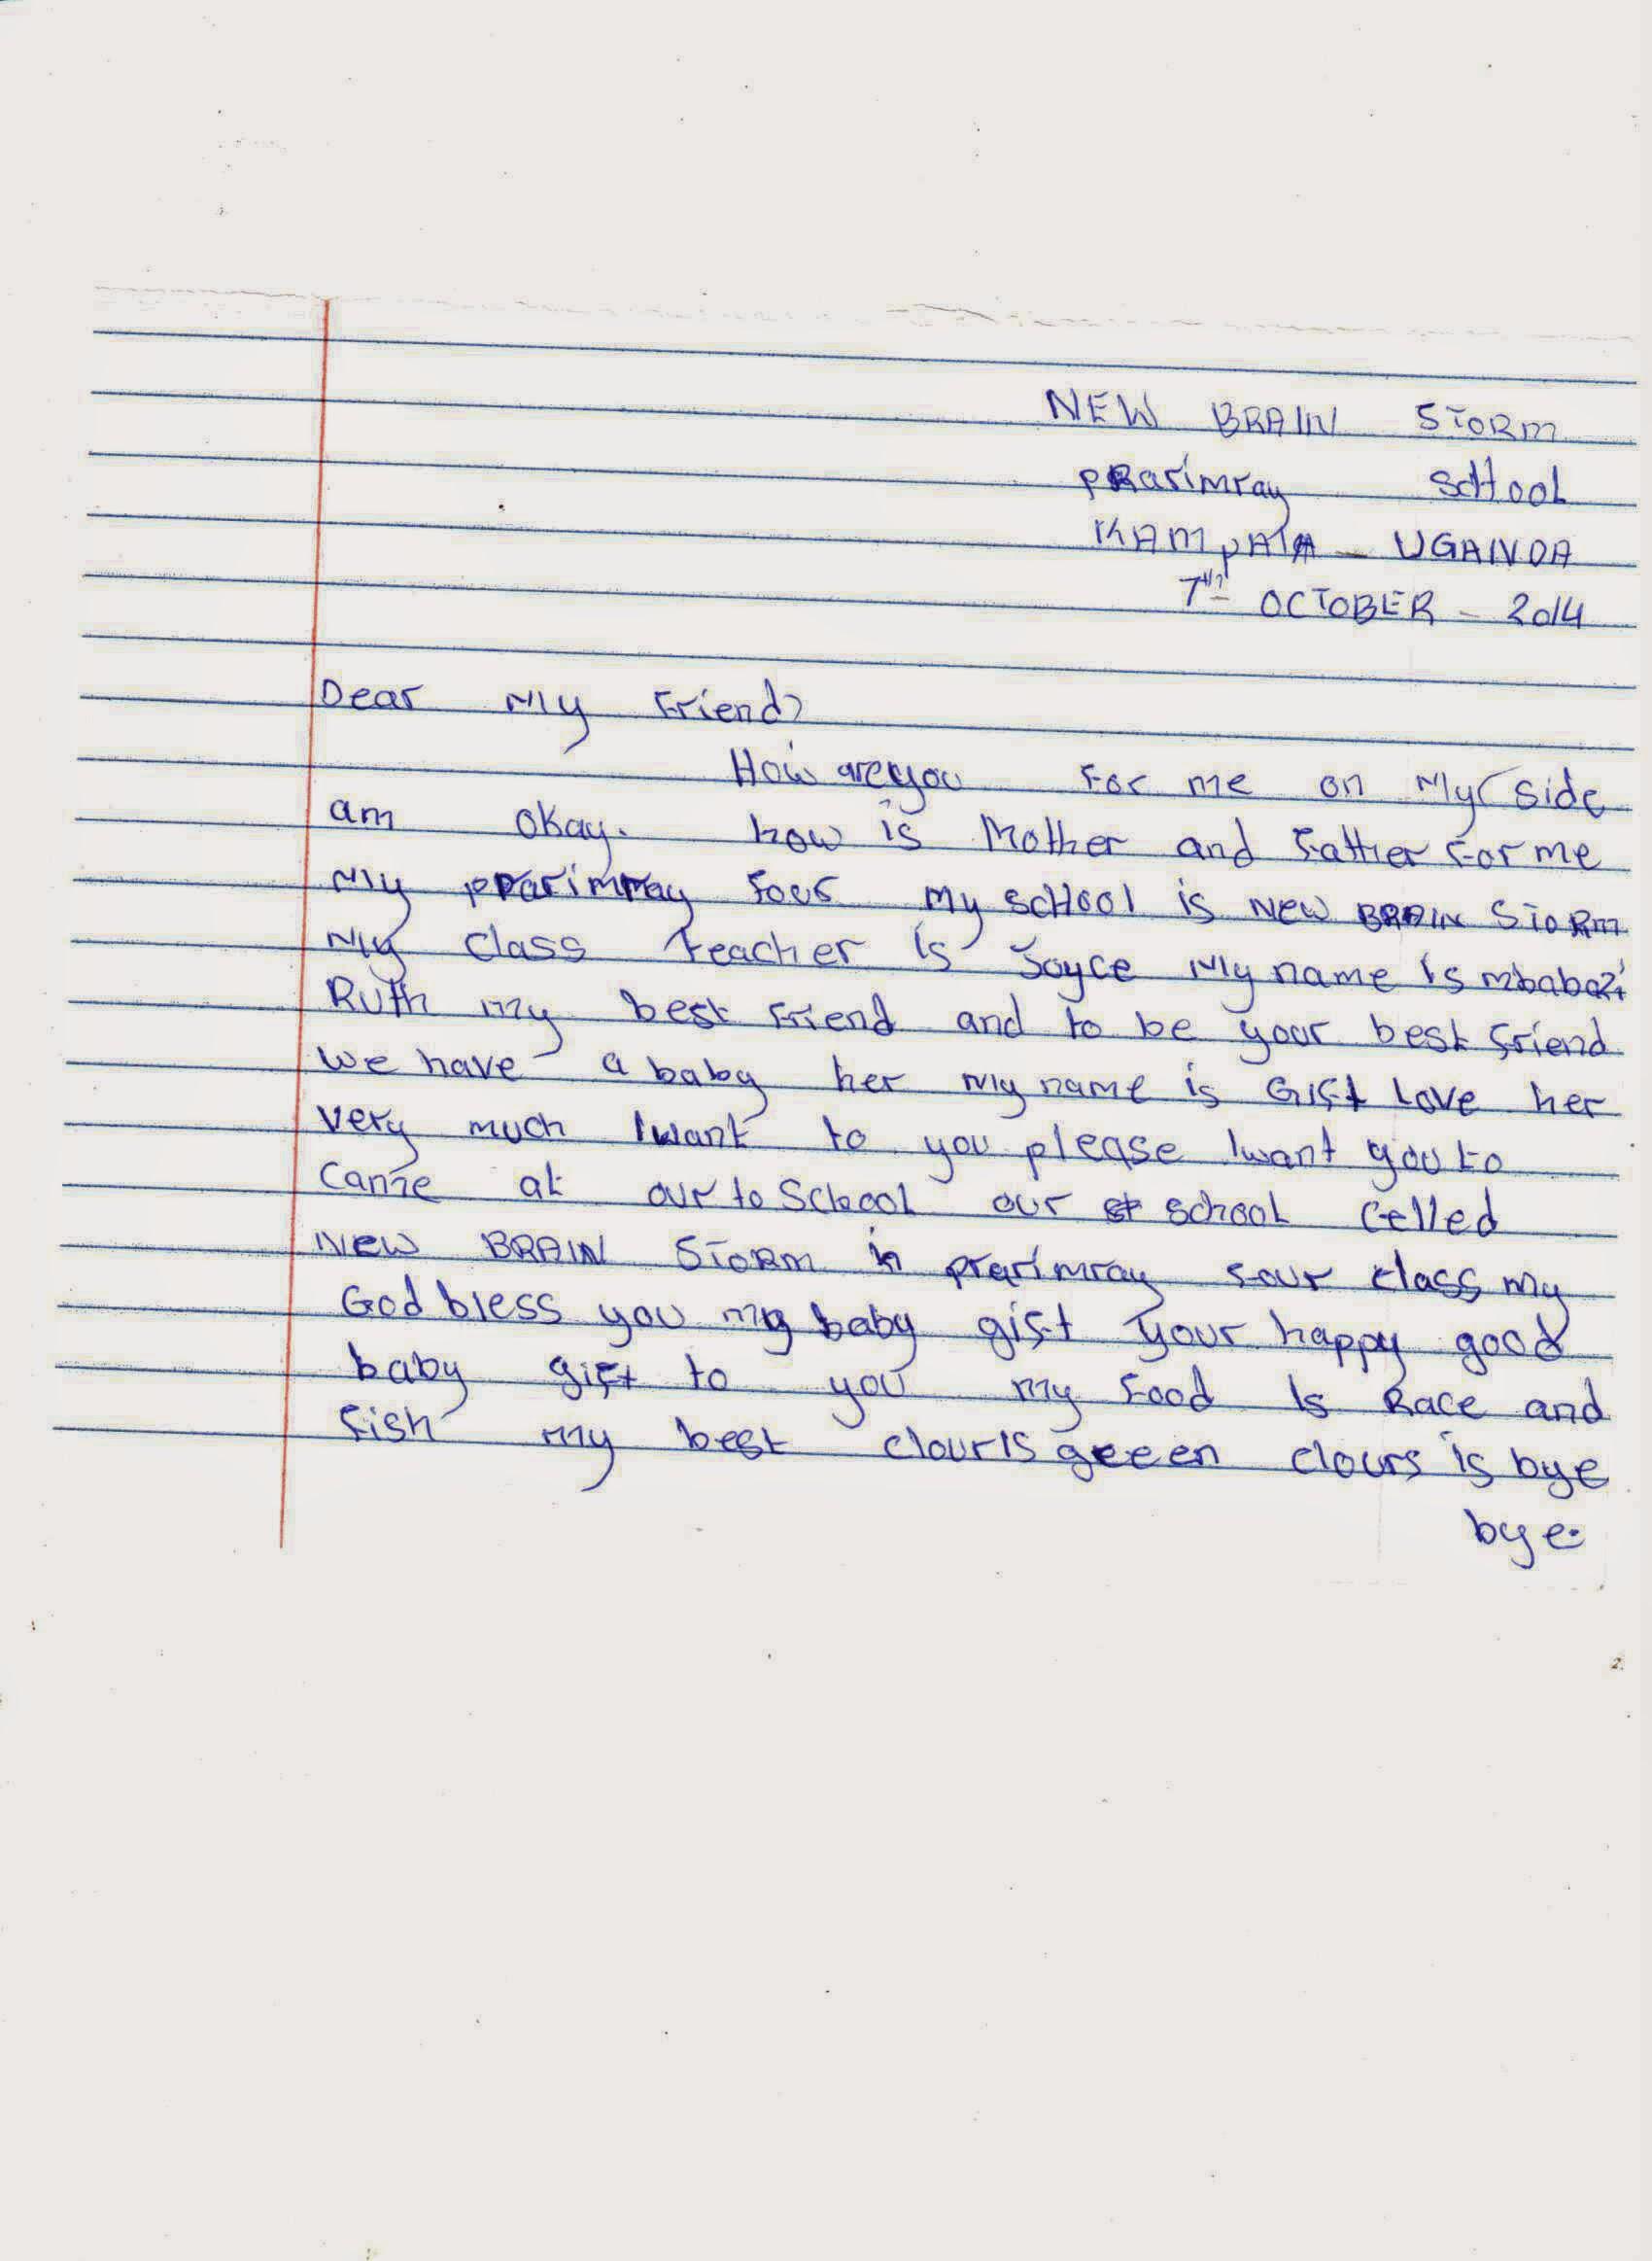 NEW BRAIN STORM
pRarimray scHool
KAMpALA - UGANDA
7th OCTOBER - 2014
Dear My Friend?
How are you For me on My side
am okay. how is Mother and Father For me
My prarimray four my scHool is New BRAIN SToRm
My class teacher is Joyce My name is mbabazi
Ruth my best Friend and to be your best friend
We have a baby her My name is Gift Love her
very much Iwant to you please Iwant you to
Came at our to School our school Celled
New BRAIN SToRm in prarimray four class my
God bless you my baby gift your happy good
baby gift to you my Food Is Race and
fish my best clouris geeen clours is bye
bye.